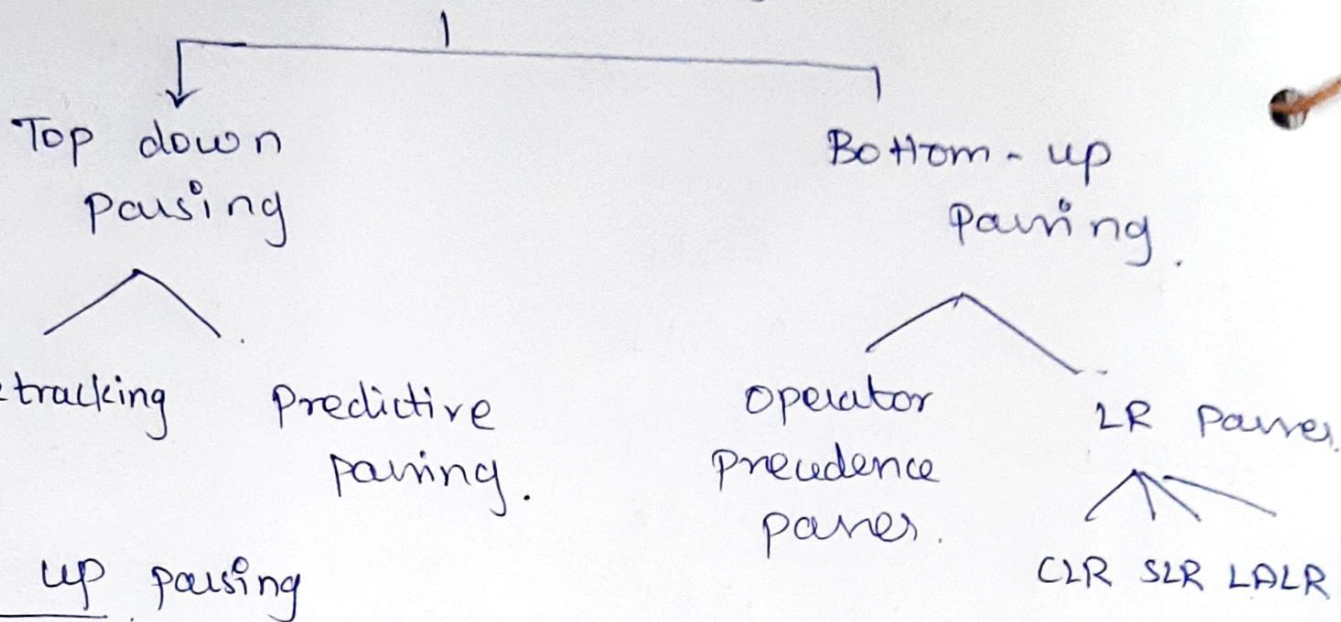 Top down
parsing
Bottom-up
parsing.
tracking
Predictive
parsing.
operator
precedence
parser.
LR Parser
CLR SLR LALR
up parsing